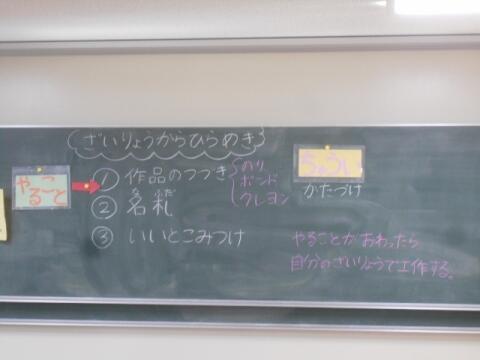 ざいりょうからひらめき
やること
① 作品のつづき
のり
ボンド
クレヨン
② 名札
ふだ
③ いいとこみつけ
ちゅうい
かたづけ
やることがおわったら
自分のざいりょうで工作する。